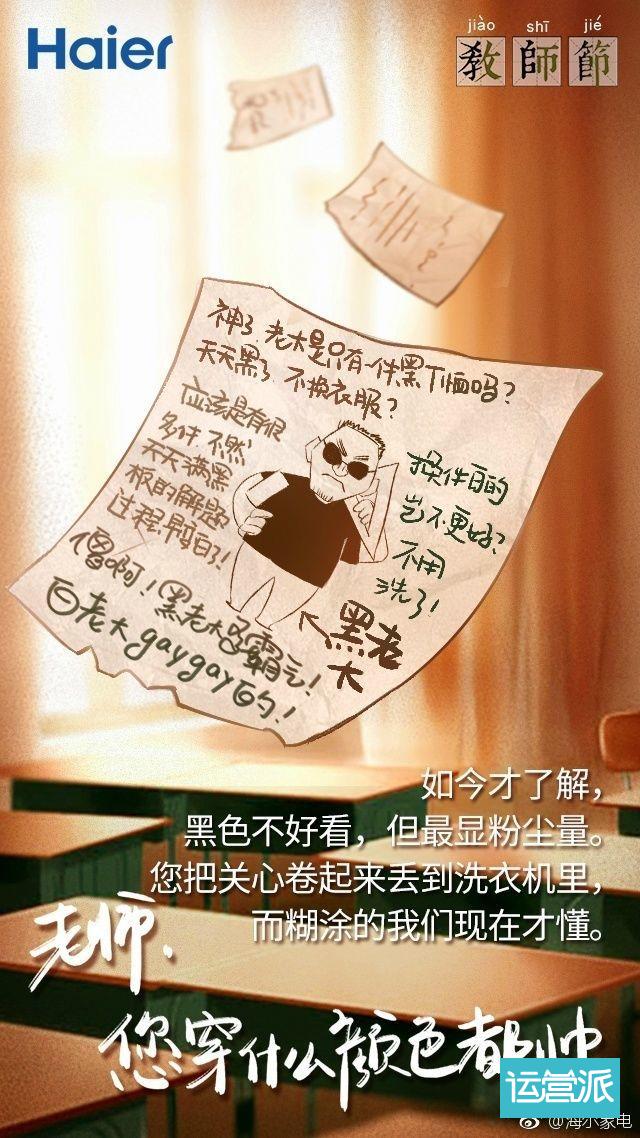 Haier
jiào shī jié
教師節
神了 老大是只有一件黑T恤吗？
天天黑了 不换衣服？
应该是有很
多件 不然
天天满黑
板的解题
过程早白了！
换件白的
岂不更好？
不用
洗了！
傻啊！黑老大多霸气！
白老大gaygay的！
黑老
大
如今才了解，
黑色不好看，但最显粉尘量。
您把关心卷起来丢到洗衣机里，
而糊涂的我们现在才懂。
老师，
您穿什么颜色都帅
运营派
@海尔家电